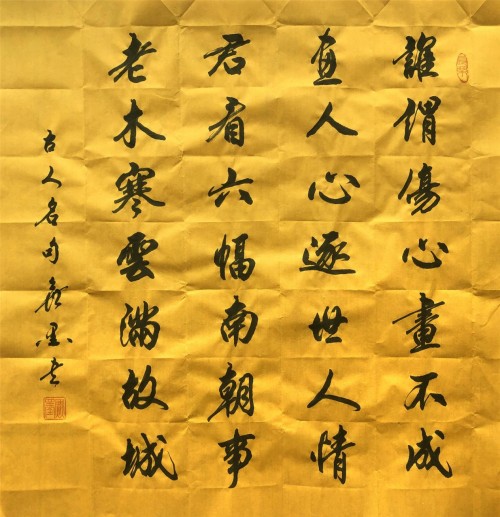 誰謂傷心畫不成
畫人心逐世人情
君看六幅南朝事
老木寒雲滿故城
古人名句